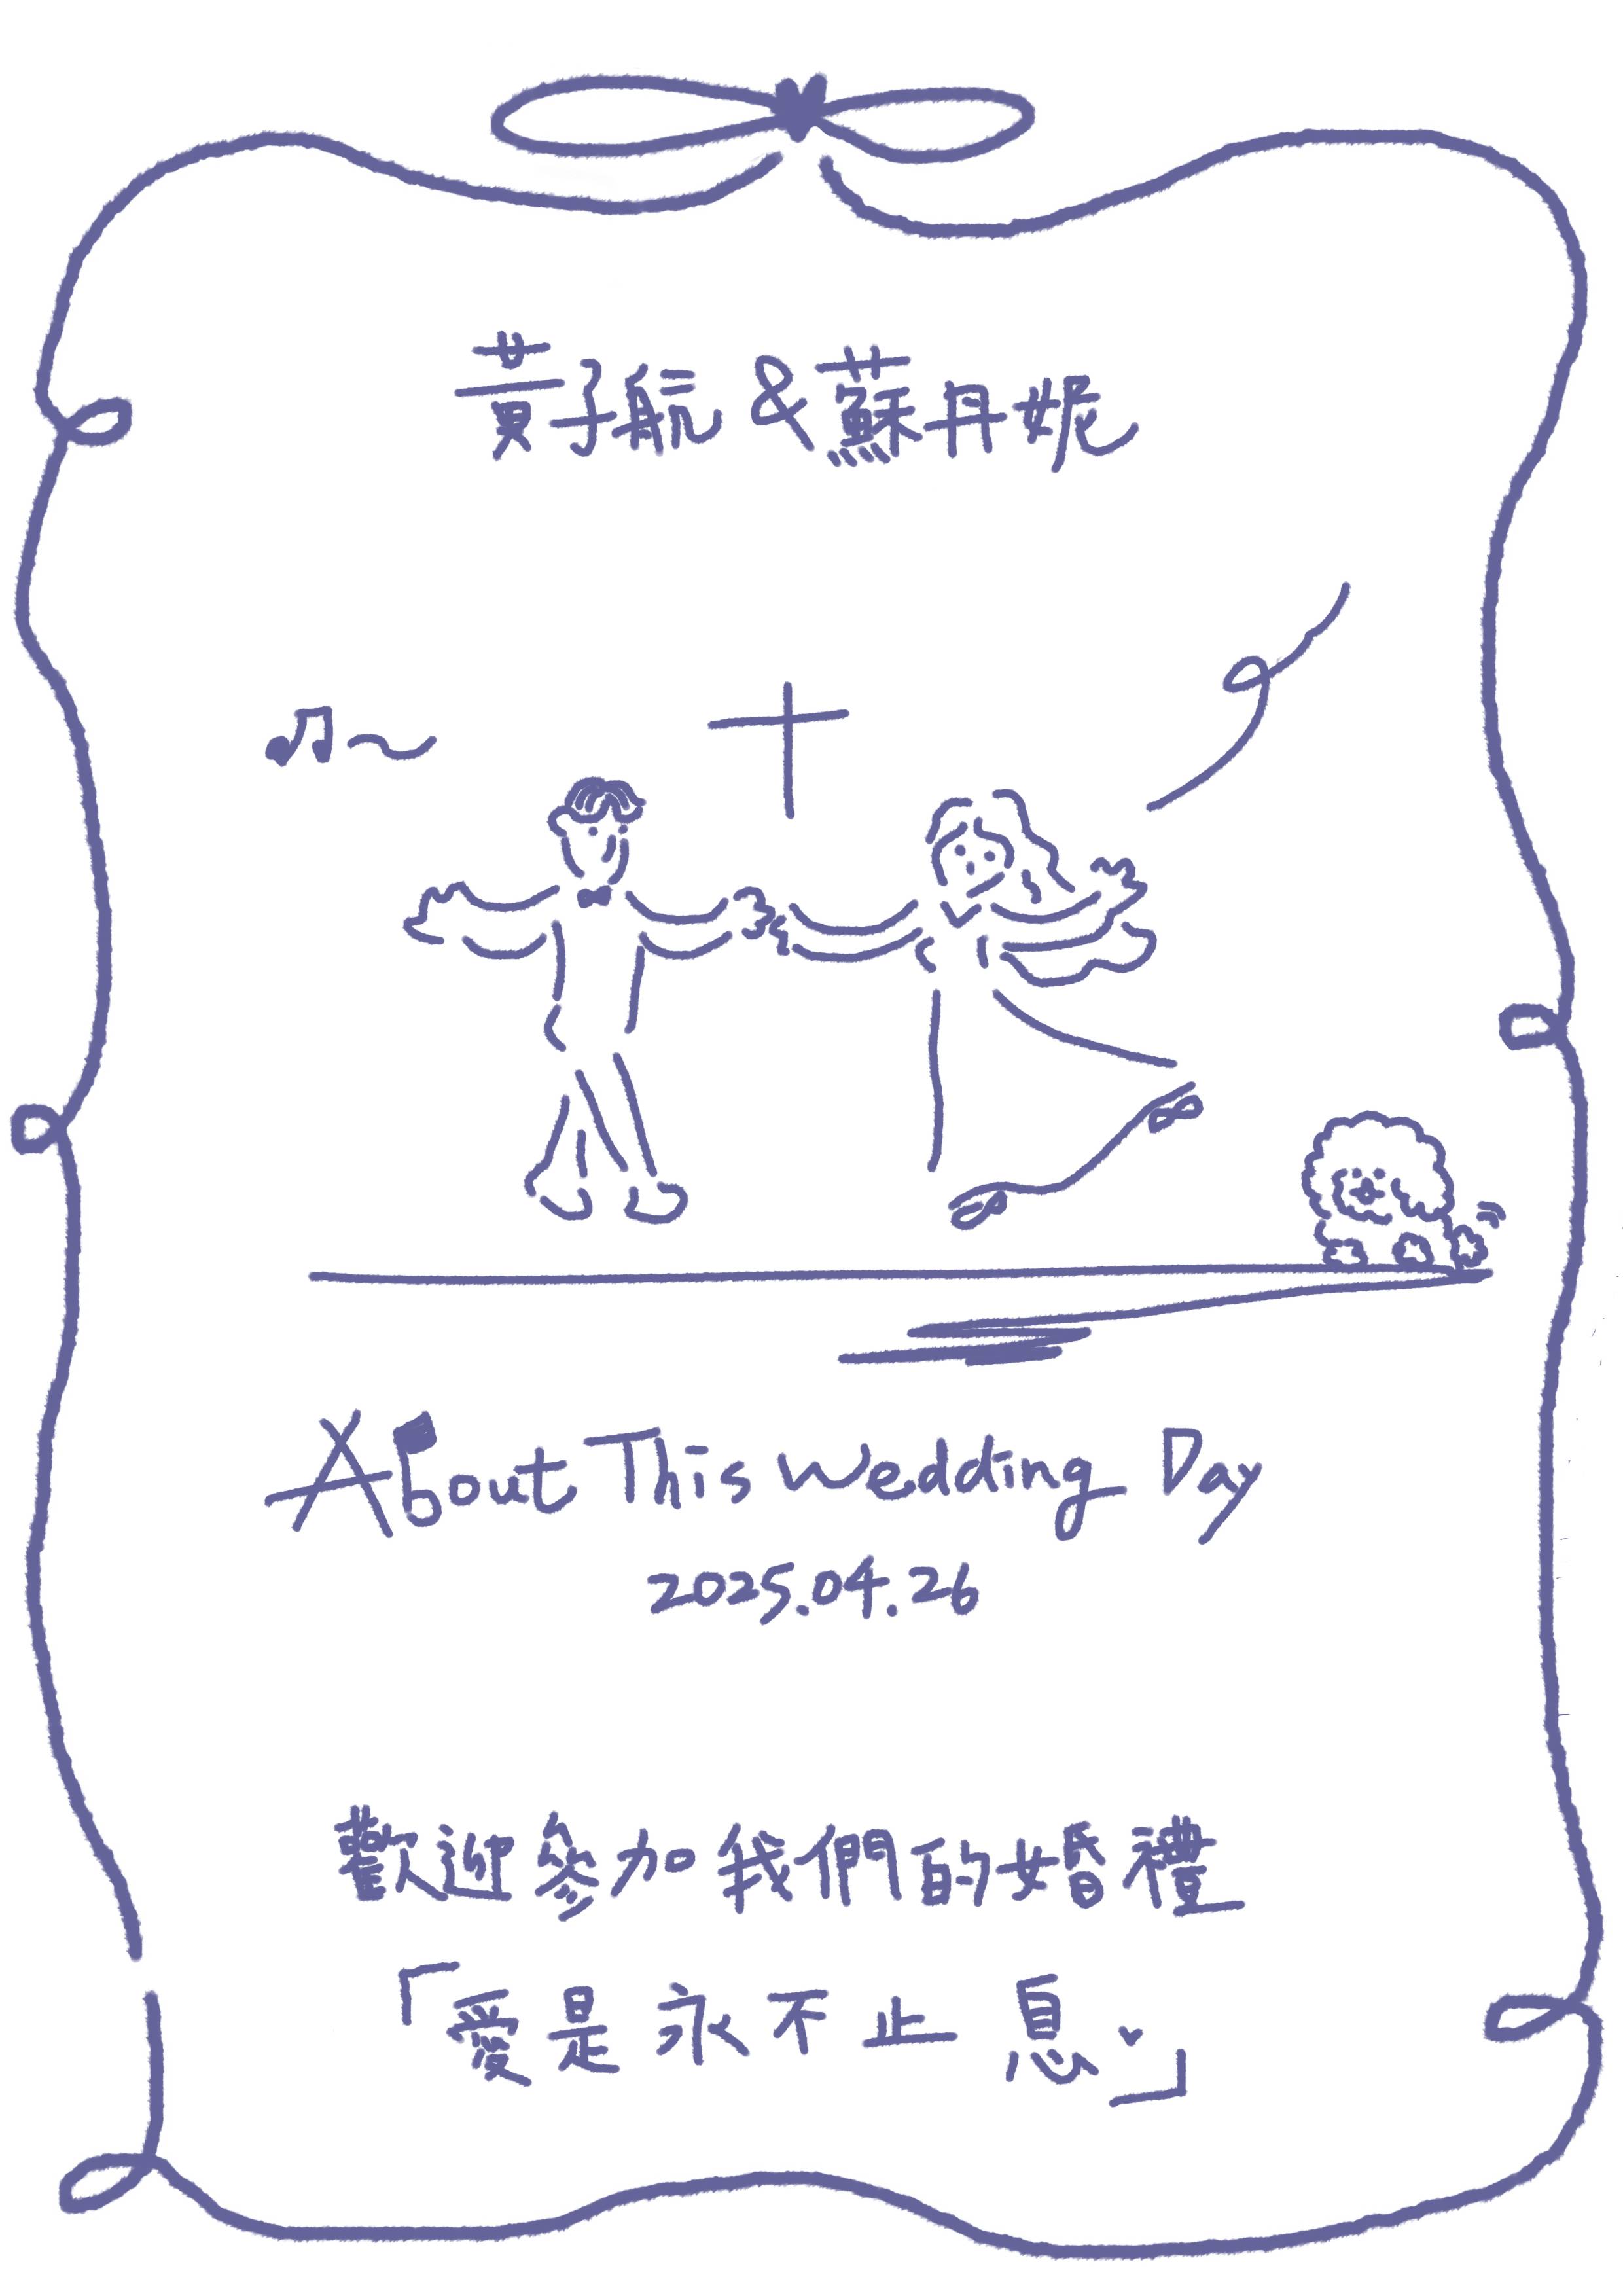 黃子航&蘇丹妮
About This Wedding Day
2025.04.26
歡迎參加我們的婚禮
「愛是永不止息」